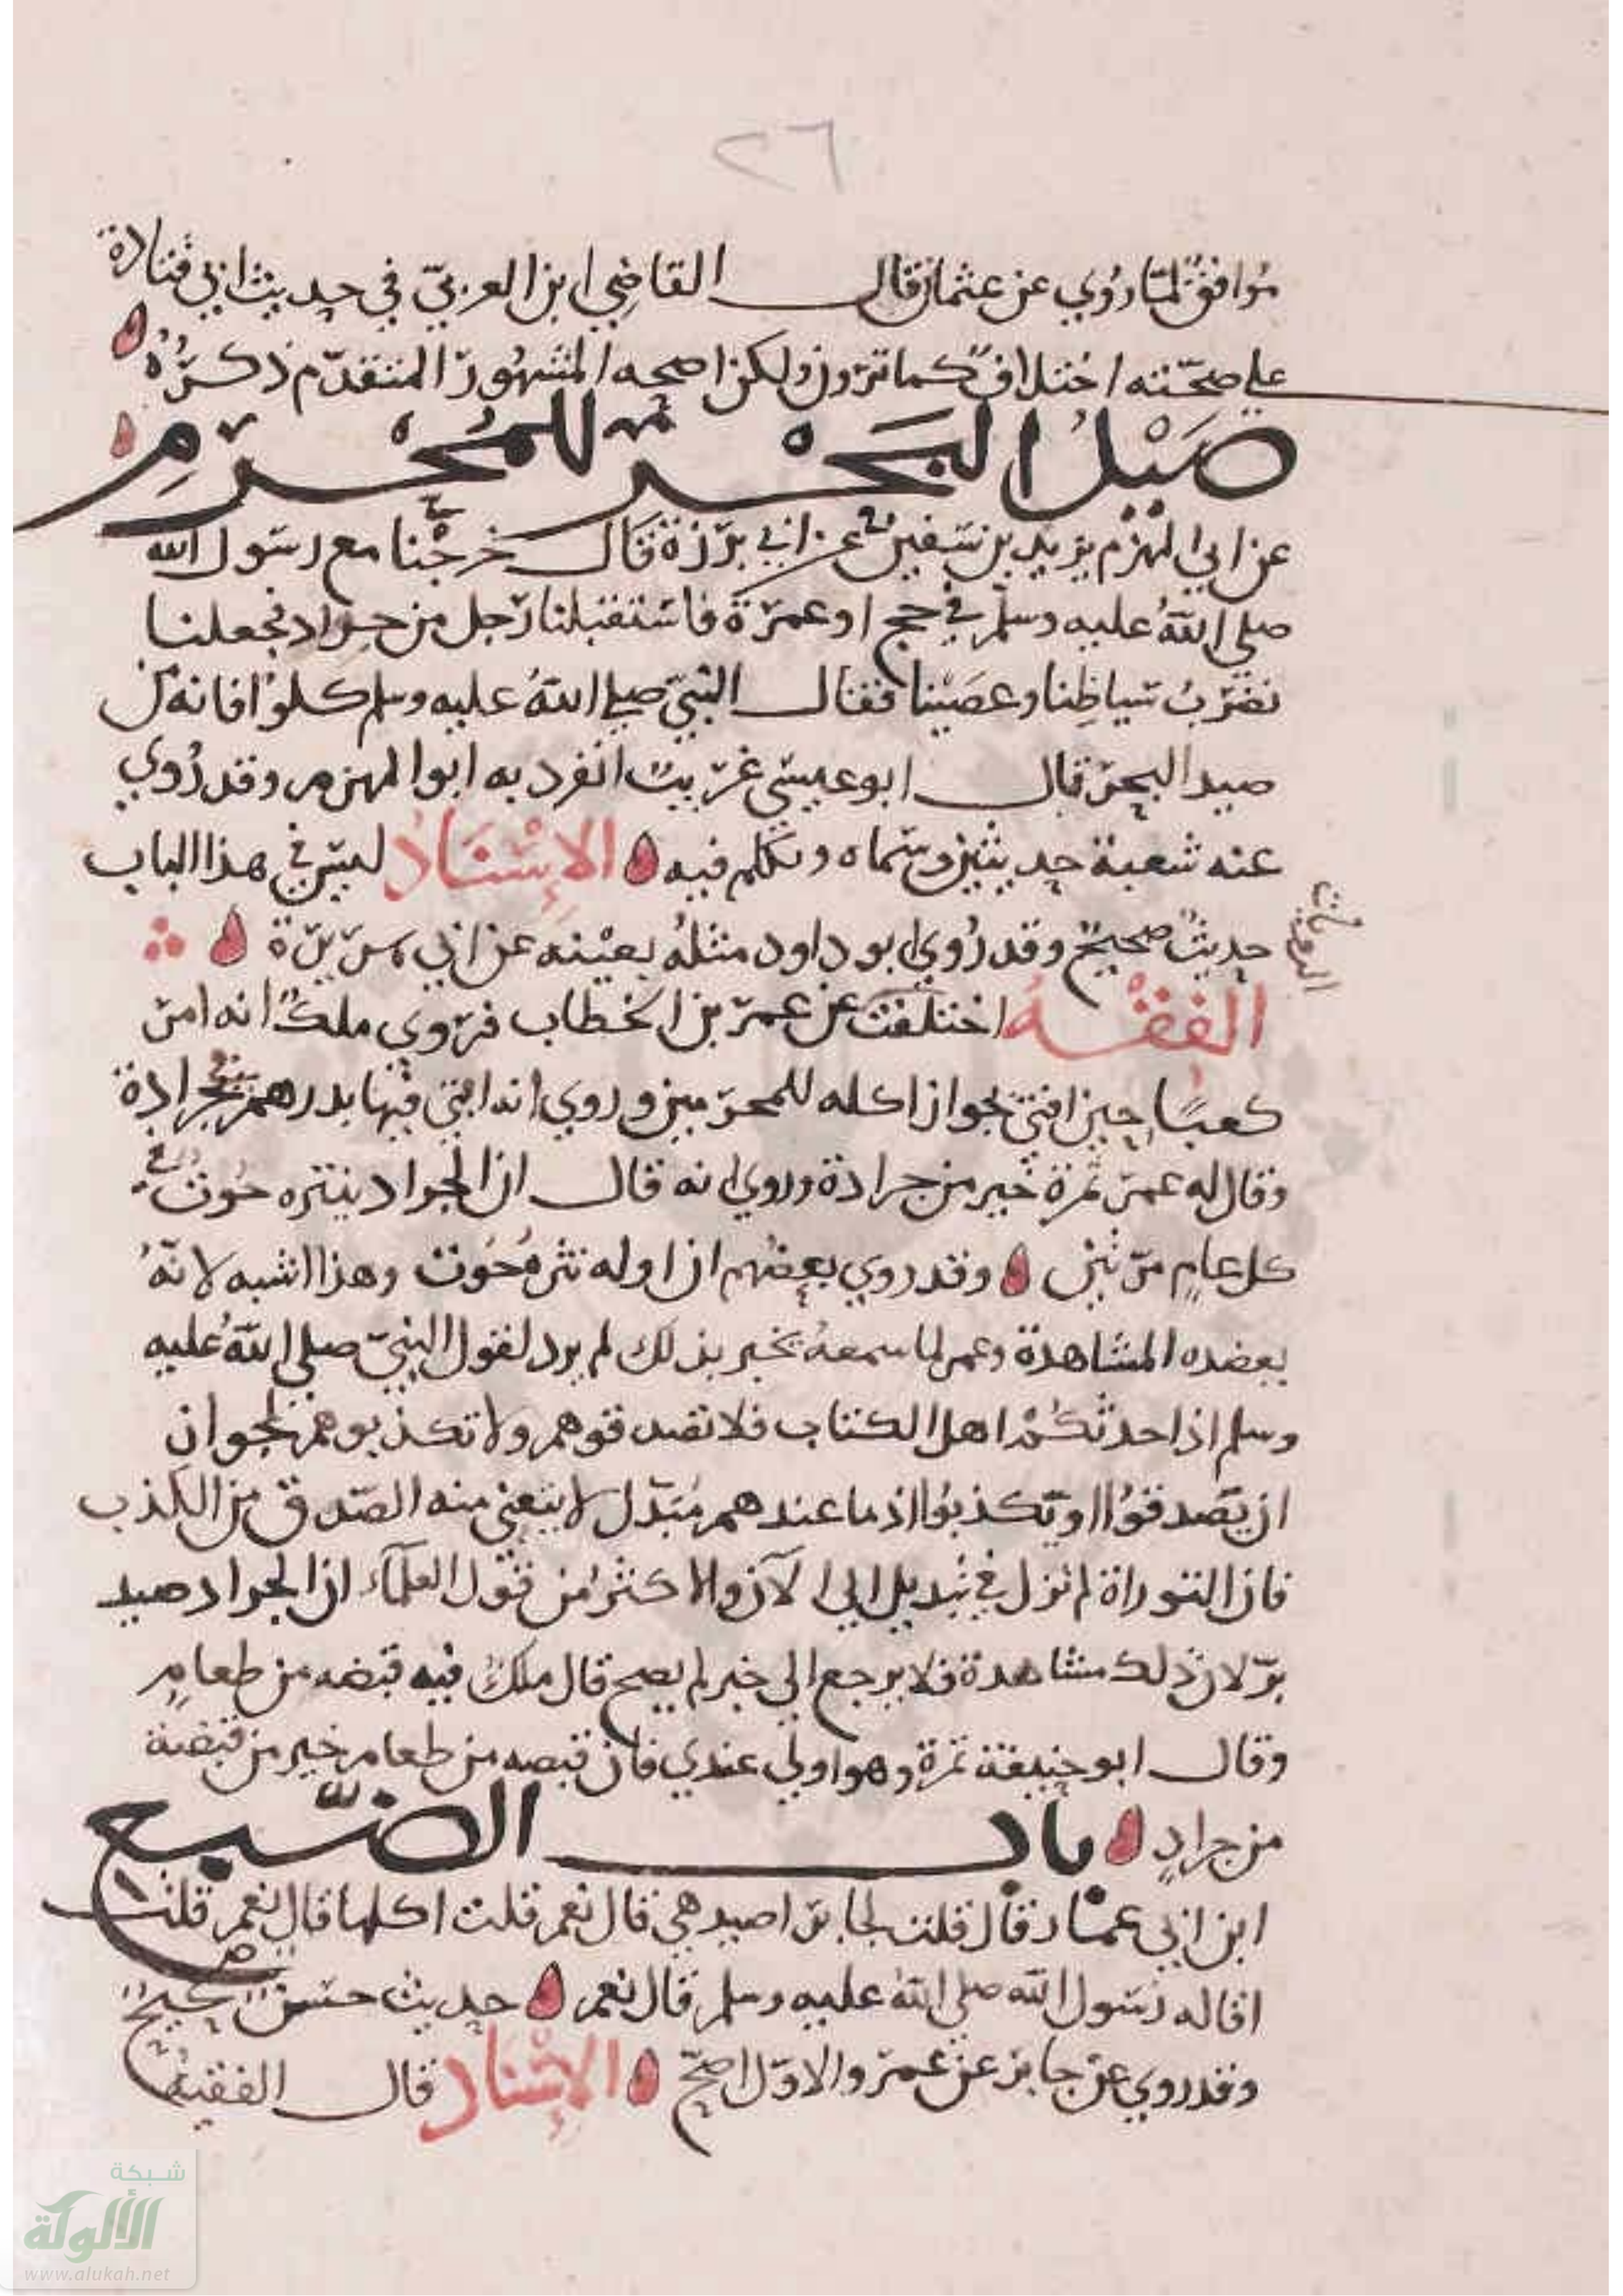 ٢٦
موافق لما روي عن عثمان قال القاضي ابن العربي في حديث ابي قتادة
علي صحته اختلاف كما ترون ولكن اصحه المشهور المتقدم ذكره
صيد البحر للمحرم
عن ابي المهزم يزيد بن سفين عن ابي برزة قال خرجنا مع رسول الله
صلي الله عليه وسلم في حج او عمرة فاستقبلنا رجل من جراد فجعلنا
نضرب سياطنا وعصينا فقال النبي صلي الله عليه وسلم كلوا فانه من
صيد البحر قال ابو عيسي غريب انفرد به ابو المهزم وقد روي
عنه شعبة حديثين وسماه وتكلم فيه الإسناد ليس في هذا الباب
حديث صحيح وقد روي ابو داود مثله بعينه عن ابي هريرة
الفقه اختلفت عن عمر بن الخطاب فروي ملك انه امر
كعبا حين افتي بجواز اكله للمحرمين وروي انه افتي فيها بدرهم في جرادة
وقال له عمر تمرة خير من جرادة وروي انه قال ان الجراد ينثره حوت في
كل عام مرتين وقد روي بعضهم ان اوله نثرة حوت وهذا اشبه لانه
يعضده المشاهدة وعمر لما سمعه يخبر بذلك لم يرد لقول النبي صلي الله عليه
وسلم اذا حدثكم اهل الكتاب فلا تصدقوهم ولا تكذبوهم لجواز
ان يصدقوا او يكذبوا اذ ما عندهم مبدل لا يتعين منه الصدق من الكذب
فان التوراة لم تزل في تبديل الي الآن والاكثر من قول العلمآء ان الجراد صيد
بر لان ذلك مشاهدة فلا يرجع الي خبر لم يصح قال ملك فيه قبضه من طعام
وقال ابو حنيفة تمرة وهو اولي عندي فان قبضه من طعام خير من قبضة
من جراد باب الضبع
ابن ابي عمار قال قلت لجابر اصيد هي قال نعم قلت اكلها قال نعم قلت
اقاله رسول الله صلي الله عليه وسلم قال نعم حديث حسن صحيح
وقد روي عن جابر عن عمر والاول اصح الإسناد قال الفقيه
شبكة
الألوكة
www.alukah.net